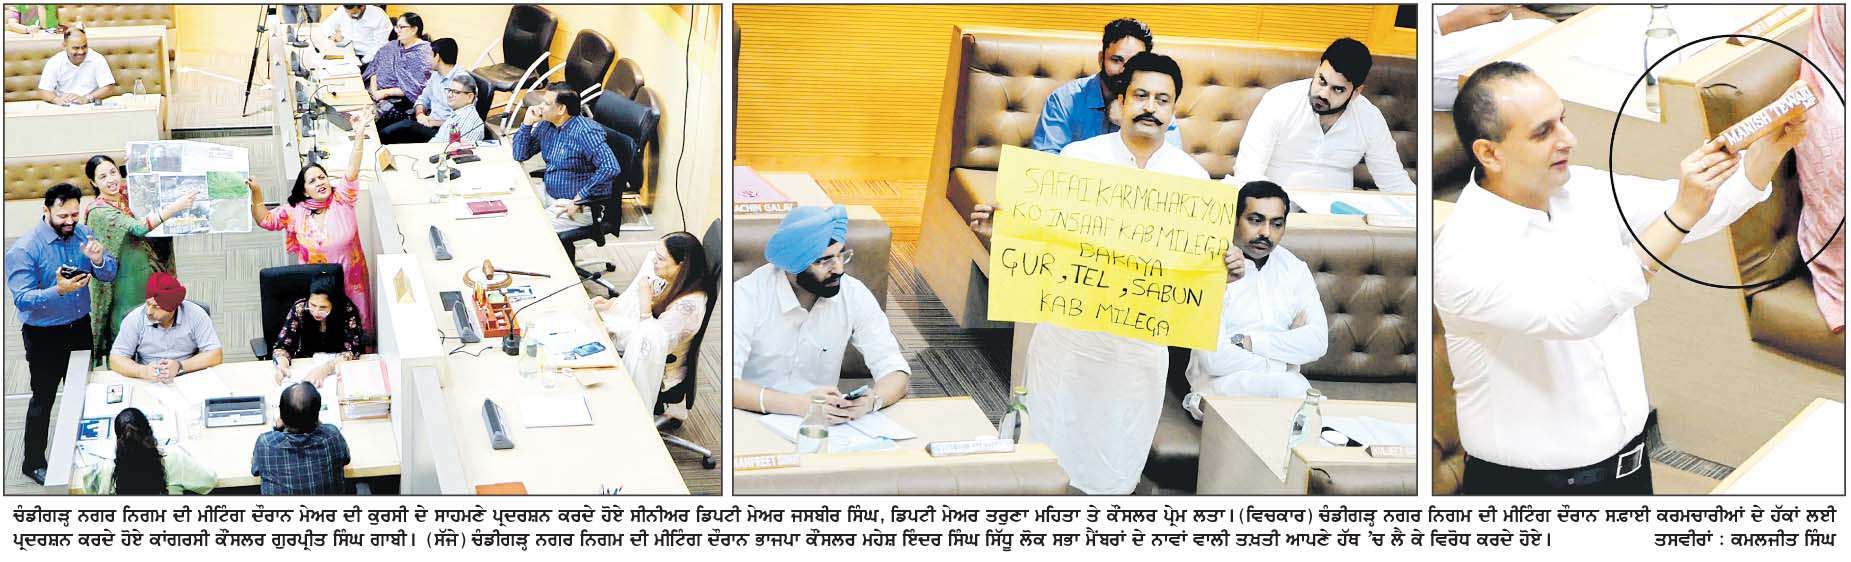 SAFAI KARMCHARIYON
KO INSAAF KAB MILEGA
BAKAYA
GUR, TEL, SABUN
KAB MILEGA
MANISH TEWARI
ਚੰਡੀਗੜ੍ਹ ਨਗਰ ਨਿਗਮ ਦੀ ਮੀਟਿੰਗ ਦੌਰਾਨ ਮੇਅਰ ਦੀ ਕੁਰਸੀ ਦੇ ਸਾਹਮਣੇ ਪ੍ਰਦਰਸ਼ਨ ਕਰਦੇ ਹੋਏ ਸੀਨੀਅਰ ਡਿਪਟੀ ਮੇਅਰ ਜਸਬੀਰ ਸਿੰਘ, ਡਿਪਟੀ ਮੇਅਰ ਤਰੁਣਾ ਮਹਿਤਾ ਤੇ ਕੌਂਸਲਰ ਪ੍ਰੇਮ ਲਤਾ। (ਵਿਚਕਾਰ) ਚੰਡੀਗੜ੍ਹ ਨਗਰ ਨਿਗਮ ਦੀ ਮੀਟਿੰਗ ਦੌਰਾਨ ਸਫ਼ਾਈ ਕਰਮਚਾਰੀਆਂ ਦੇ ਹੱਕਾਂ ਲਈ
ਪ੍ਰਦਰਸ਼ਨ ਕਰਦੇ ਹੋਏ ਕਾਂਗਰਸੀ ਕੌਂਸਲਰ ਗੁਰਪ੍ਰੀਤ ਸਿੰਘ ਗਾਬੀ। (ਸੱਜੇ) ਚੰਡੀਗੜ੍ਹ ਨਗਰ ਨਿਗਮ ਦੀ ਮੀਟਿੰਗ ਦੌਰਾਨ ਭਾਜਪਾ ਕੌਂਸਲਰ ਮਹੇਸ਼ ਇੰਦਰ ਸਿੰਘ ਸਿੱਧੂ ਲੋਕ ਸਭਾ ਮੈਂਬਰਾਂ ਦੇ ਨਾਵਾਂ ਵਾਲੀ ਤਖ਼ਤੀ ਆਪਣੇ ਹੱਥ 'ਚ ਲੈ ਕੇ ਵਿਰੋਧ ਕਰਦੇ ਹੋਏ। ਤਸਵੀਰਾਂ : ਕਮਲਜੀਤ ਸਿੰਘ